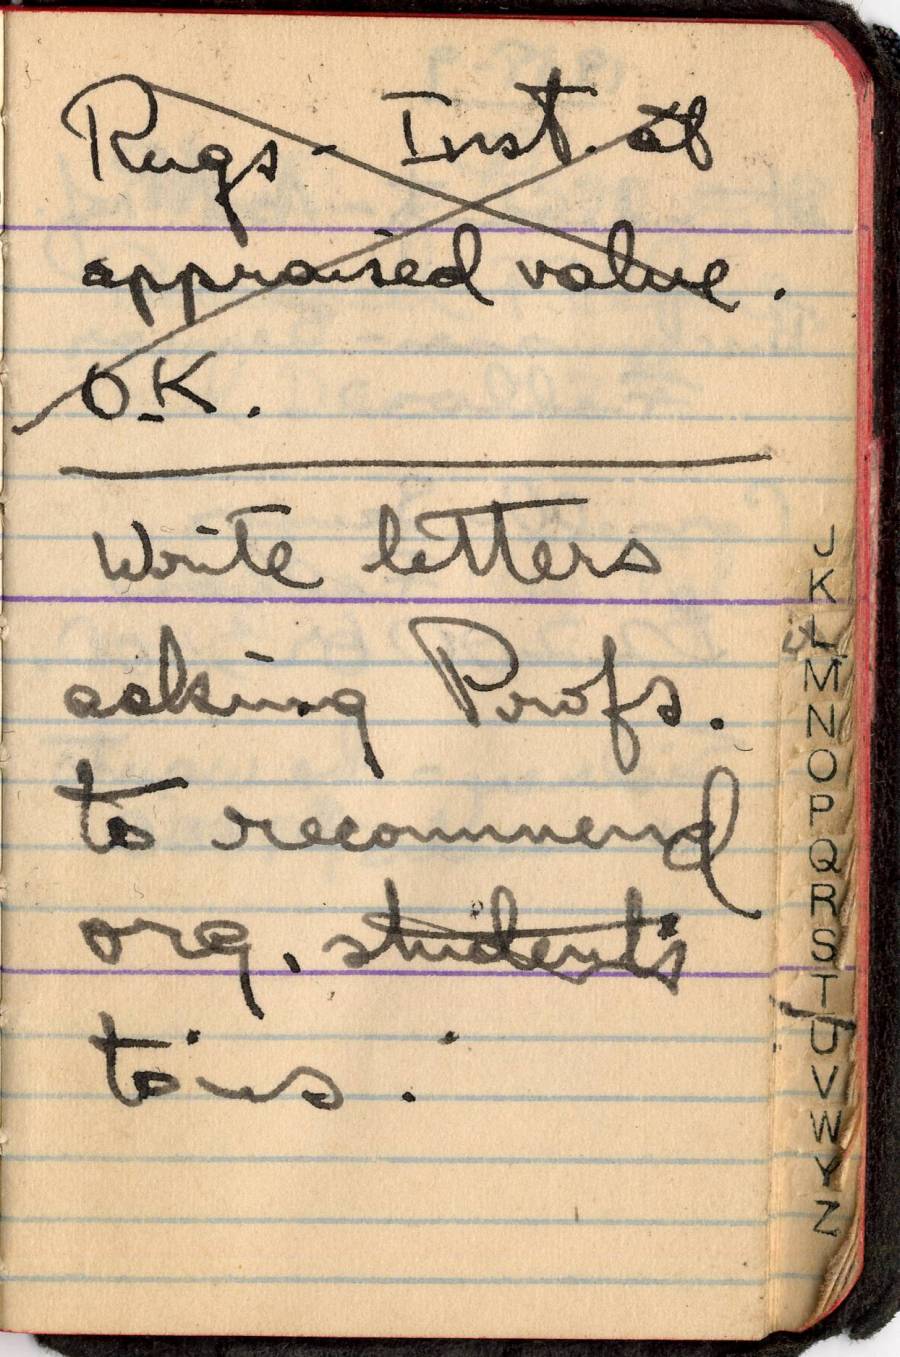 Rugs - Inst. at
appraised value.
O.K.
Write letters
asking Profs.
to recommend
org. students
to us.
J
K
L
M
N
O
P
Q
R
S
T
U
V
W
Y
Z